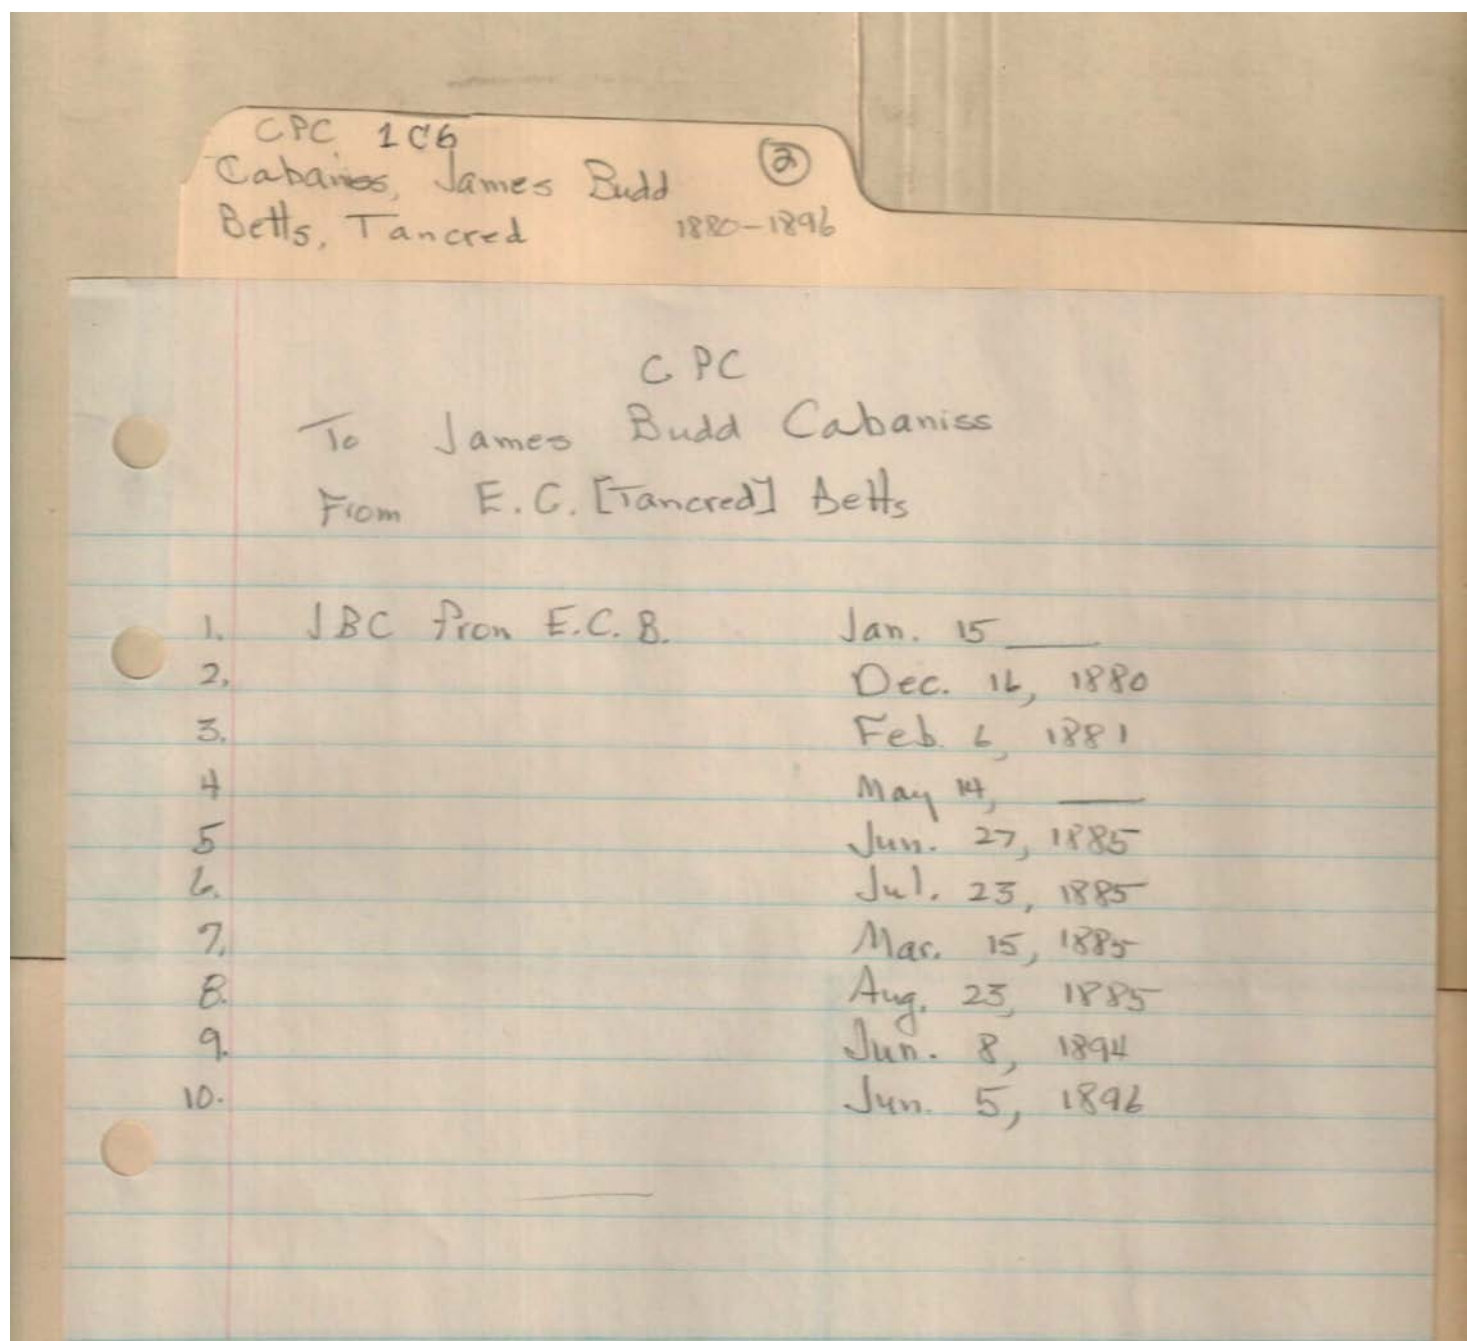 CPC 1C6
Cabaniss, James Budd
②
Betts, Tancred 1880-1896
CPC
To James Budd Cabaniss
From E.C. [Tancred] Betts
1. JBC from E.C.B. Jan. 15 ____
2. Dec. 16, 1880
3. Feb. 6, 1881
4 May 14, ____
5 Jun. 27, 1885
6. Jul. 23, 1885
7. Mar. 15, 1885
8. Aug. 23, 1885
9. Jun. 8, 1894
10. Jun. 5, 1896